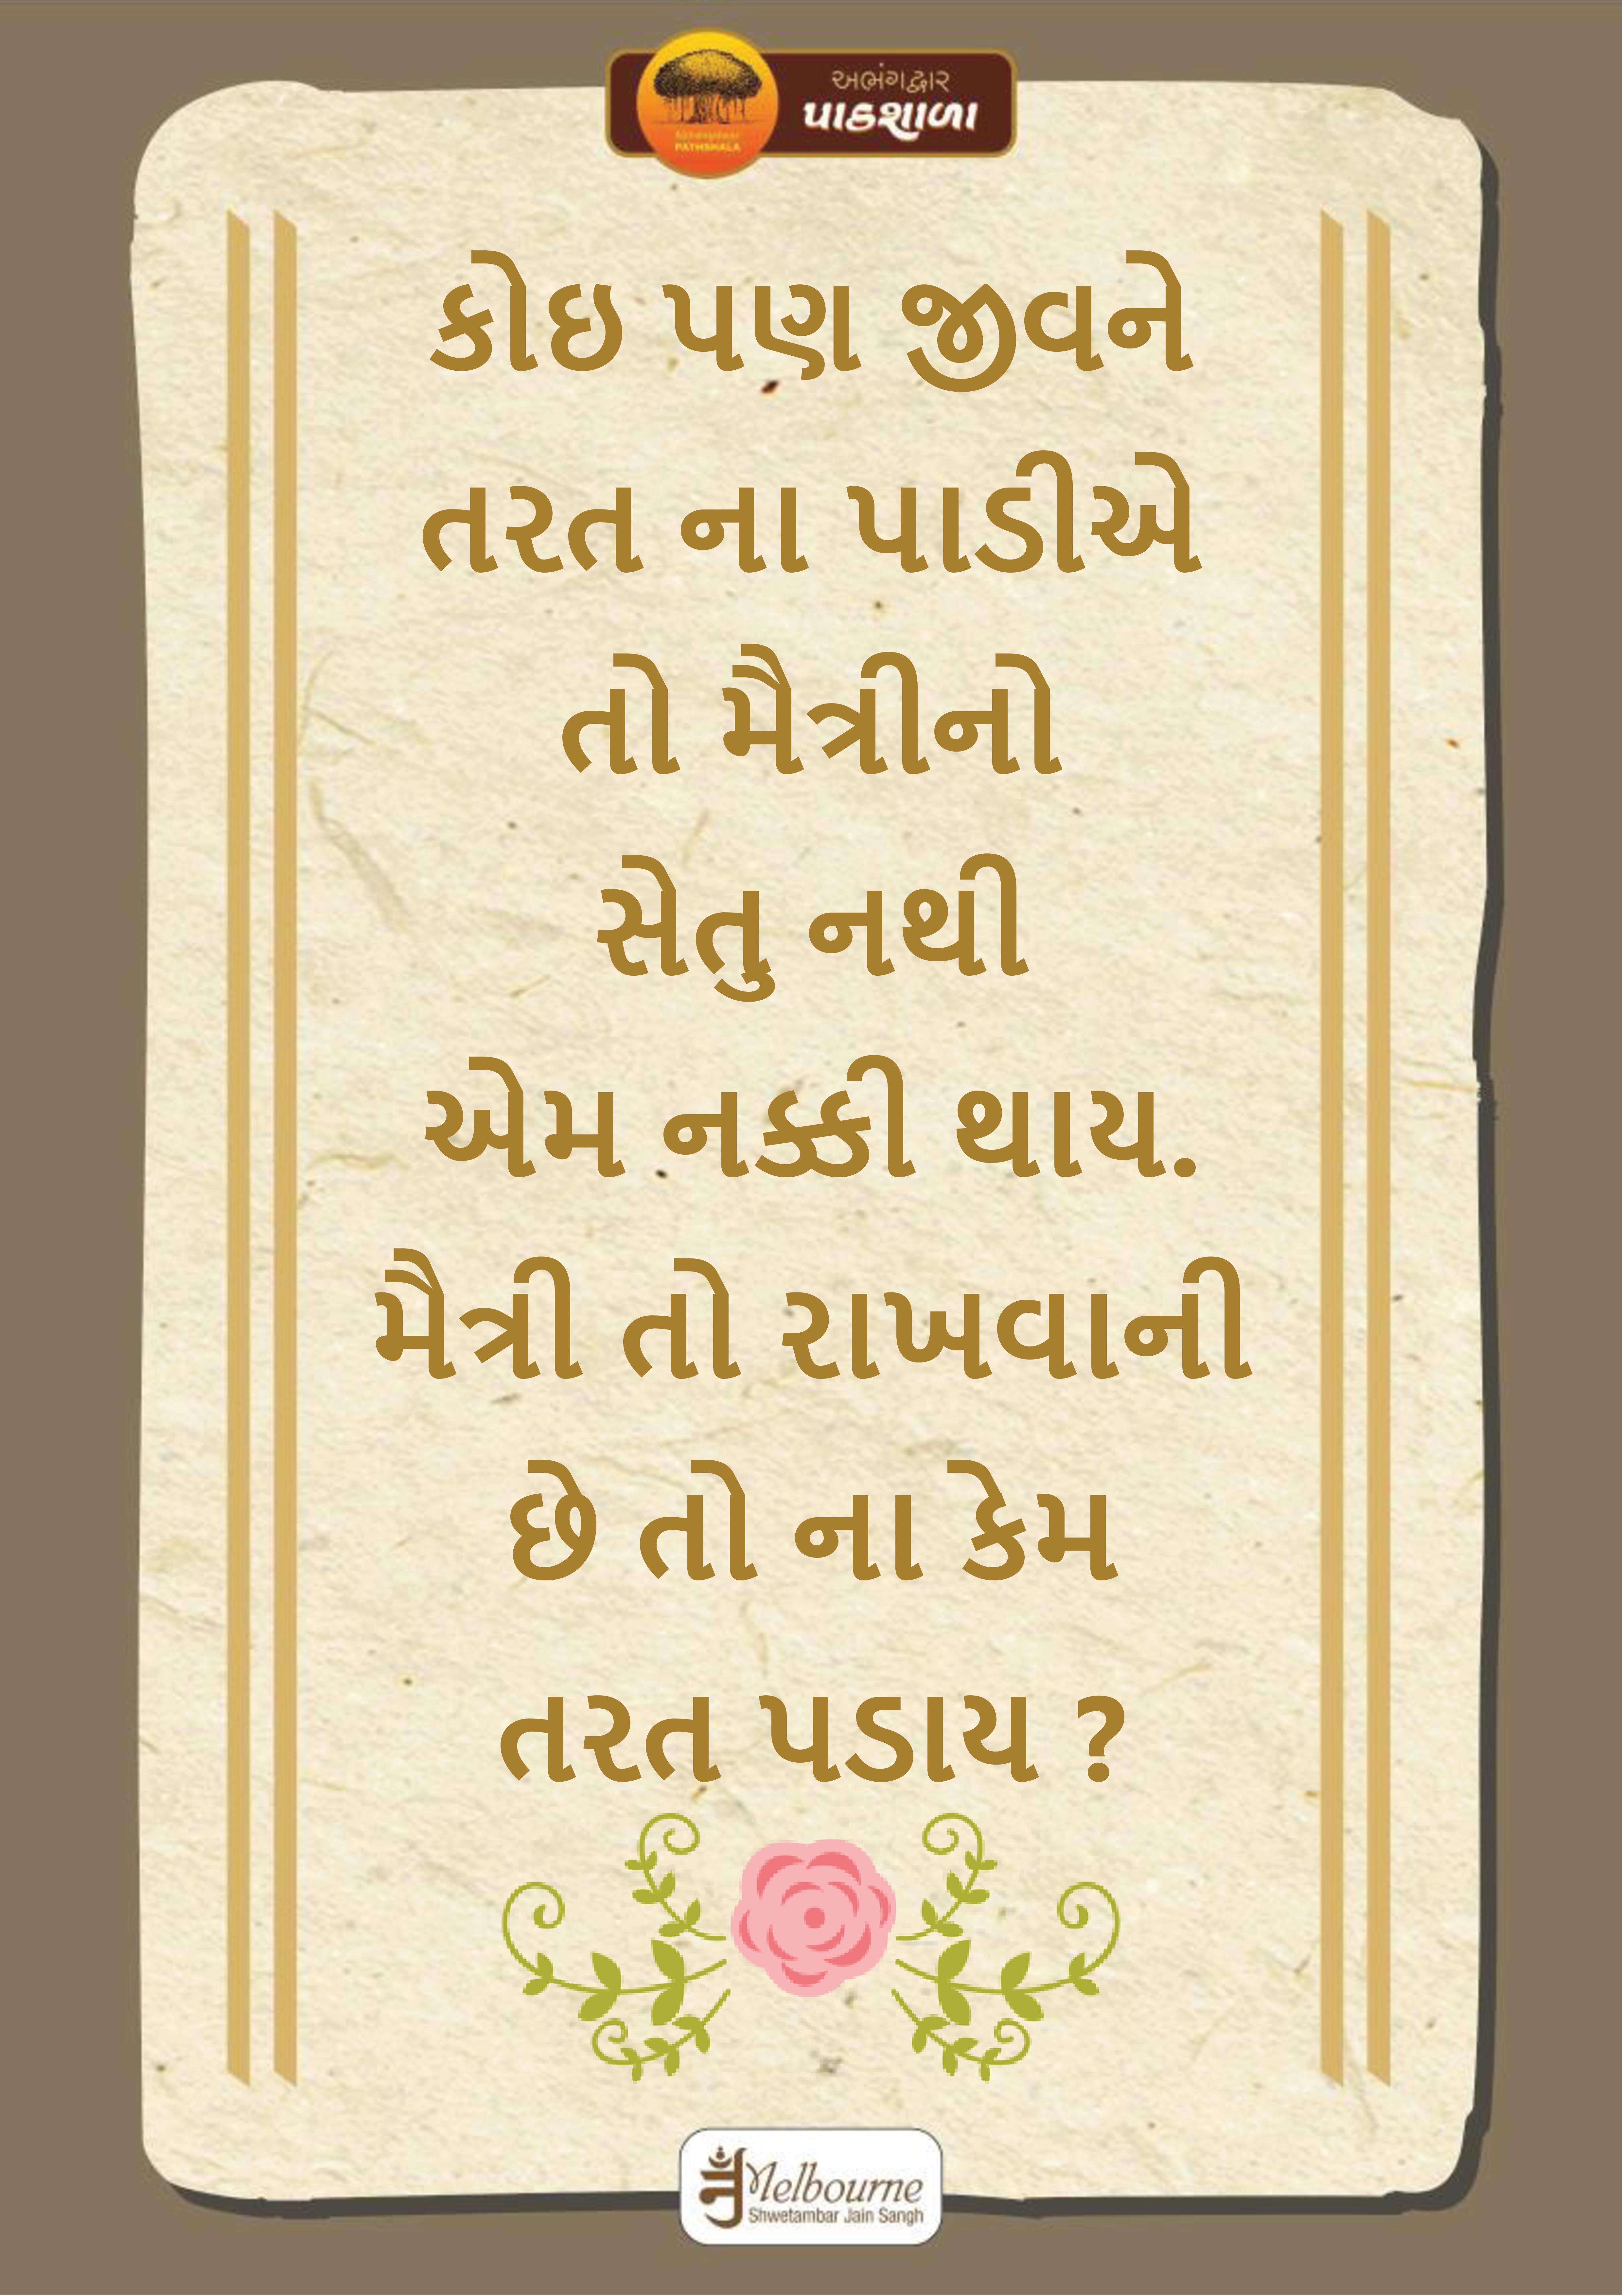 અભંગદ્વાર
પાઠશાળા
PATHSHALA
કોઇ પણ જીવને
તરત ના પાડીએ
તો મૈત્રીનો
સેતુ નથી
એમ નક્કી થાય.
મૈત્રી તો રાખવાની
છે તો ના કેમ
તરત પડાય ?
Melbourne
Shwetambar Jain Sangh